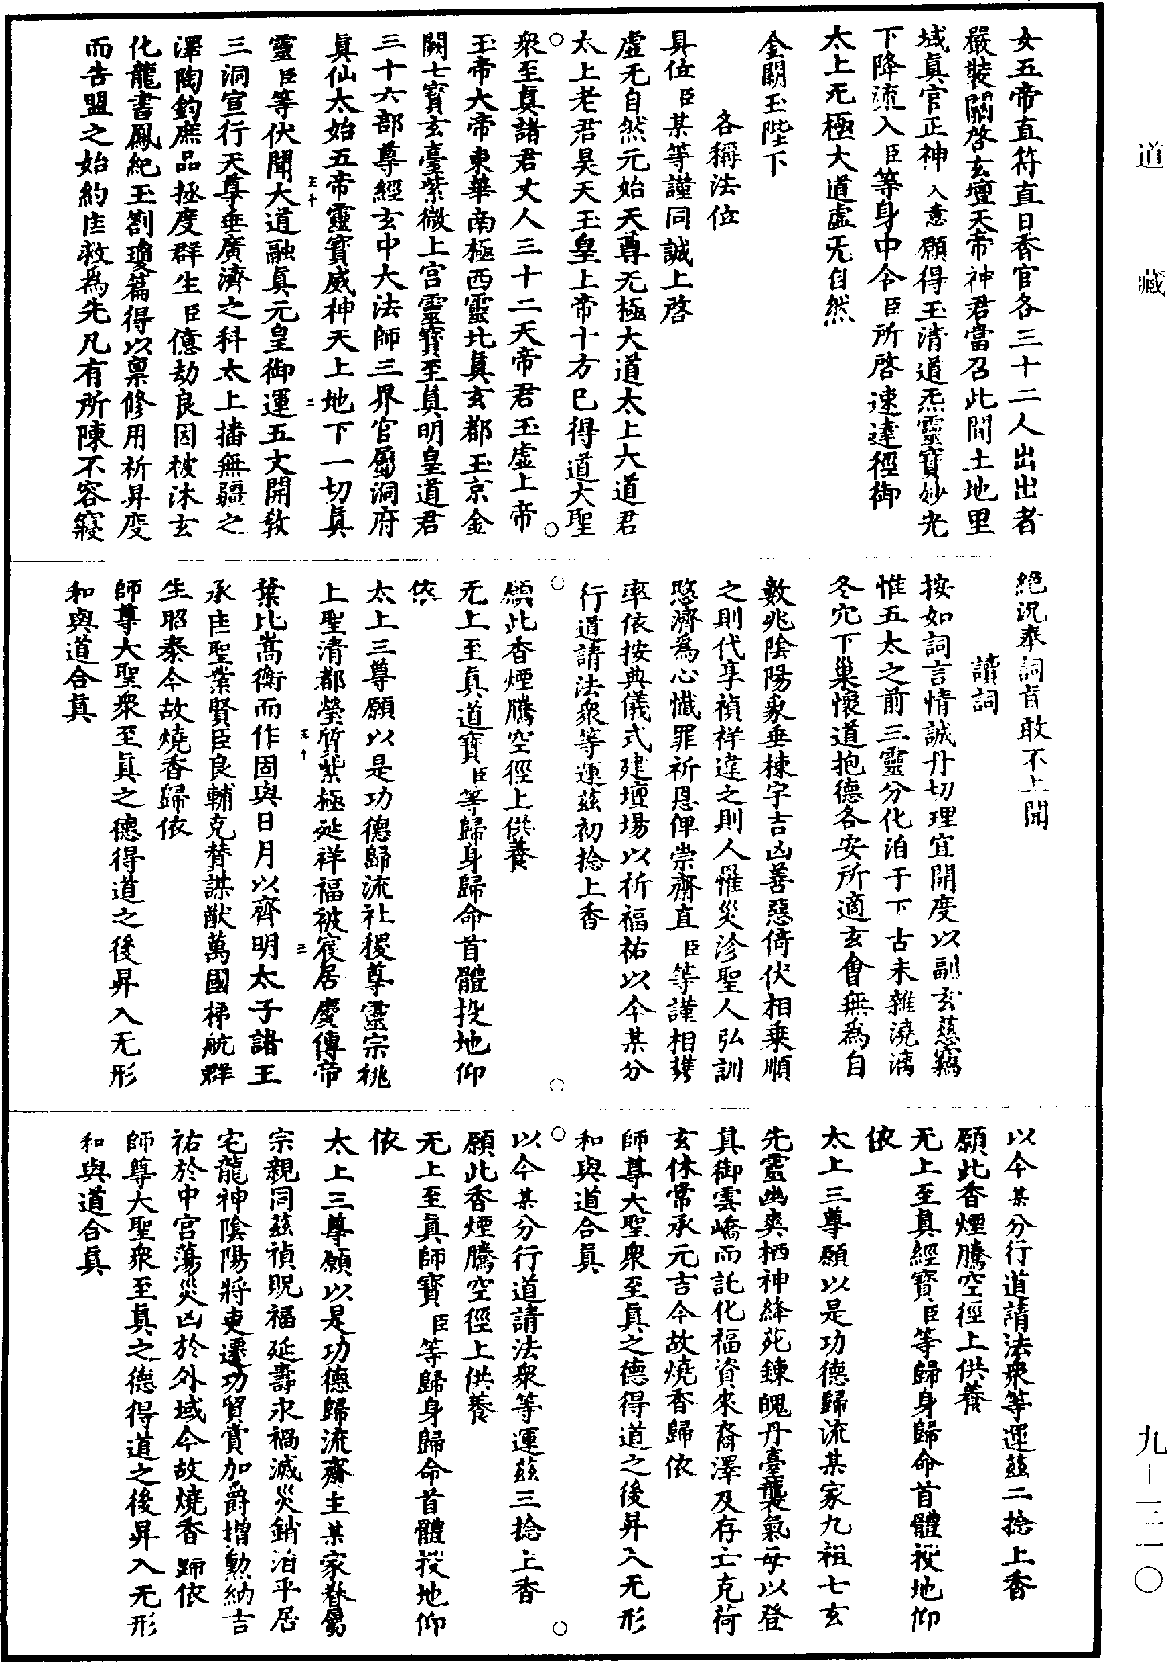 道藏
女五帝直符直日香官各三十二人出出者
嚴裝關啓玄壇天帝神君當召此間土地里
域真官正神入意願得玉清道炁靈寶妙光
下降流入臣等身中令臣所啓速達徑御
太上无極大道虛无自然
金闕玉陛下
各稱法位
具位臣某等謹同誠上啓
虛无自然元始天尊无極大道太上大道君
太上老君昊天玉皇上帝十方已得道大聖
衆至真諸君丈人三十二天帝君玉虛上帝
玉帝大帝東華南極西靈北真玄都玉京金
闕七寶玄臺紫微上宮靈寶至真明皇道君
三十六部尊經玄中大法師三界官屬洞府
真仙太始五帝靈寶威神天上地下一切真
靈臣等伏聞大道融真元皇御運五文開教
三洞宣行天尊垂廣濟之科太上播無疆之
澤陶鈞庶品拯度群生臣億劫良因被沐玄
化龍書鳳紀玉劄瓊篇得以稟修用祈昇度
而告盟之始約佳救為先凡有所陳不容寢
絕況奉詞旨敢不上聞
讀詞
按如詞言情誠丹切理宜開度以副玄慈竊
惟五太之前三靈分化洎于下古未雜澆漓
冬穴下巢懷道抱德各安所適玄會無為自
數兆陰陽象垂棟宇吉凶善惡倚伏相乗順
之則代享禎祥違之則人罹災沴聖人弘訓
愍濟為心懺罪祈恩俾崇齋直臣等謹相攜
率依按典儀式建壇場以祈福祐以今某分
行道請法衆等運茲初捻上香
願此香煙騰空徑上供養
无上至真道寶臣等歸身歸命首體投地仰
依
太上三尊願以是功德歸流社稷尊靈宗祧
上聖清都瑩質紫極延祥福被宸居慶傳帝
葉比嵩衡而作固與日月以齊明太子諸王
承佳聖業賢臣良輔克賛謀猷萬國梯航群
生昭泰今故燒香歸依
師尊大聖衆至真之德得道之後昇入无形
和與道合真
以今某分行道請法衆等運茲二捻上香
願此香煙騰空徑上供養
无上至真經寶臣等歸身歸命首體投地仰
依
太上三尊願以是功德歸流某家九祖七玄
先靈幽爽栖神絳苑鍊魄丹臺襲氣母以登
真御雲嶠而託化福資來裔澤及存亡克荷
玄休常承元吉今故燒香歸依
師尊大聖衆至真之德得道之後昇入无形
和與道合真
以今某分行道請法衆等運茲三捻上香
願此香煙騰空徑上供養
无上至真師寶臣等歸身歸命首體投地仰
依
太上三尊願以是功德歸流齋主某家眷屬
宗親同茲禎貺福延壽永禍滅災銷洎平居
宅龍神陰陽將吏遷功賀賞加爵增勲納吉
祐於中宮蕩災凶於外域今故燒香歸依
師尊大聖衆至真之德得道之後昇入无形
和與道合真
九—二一〇